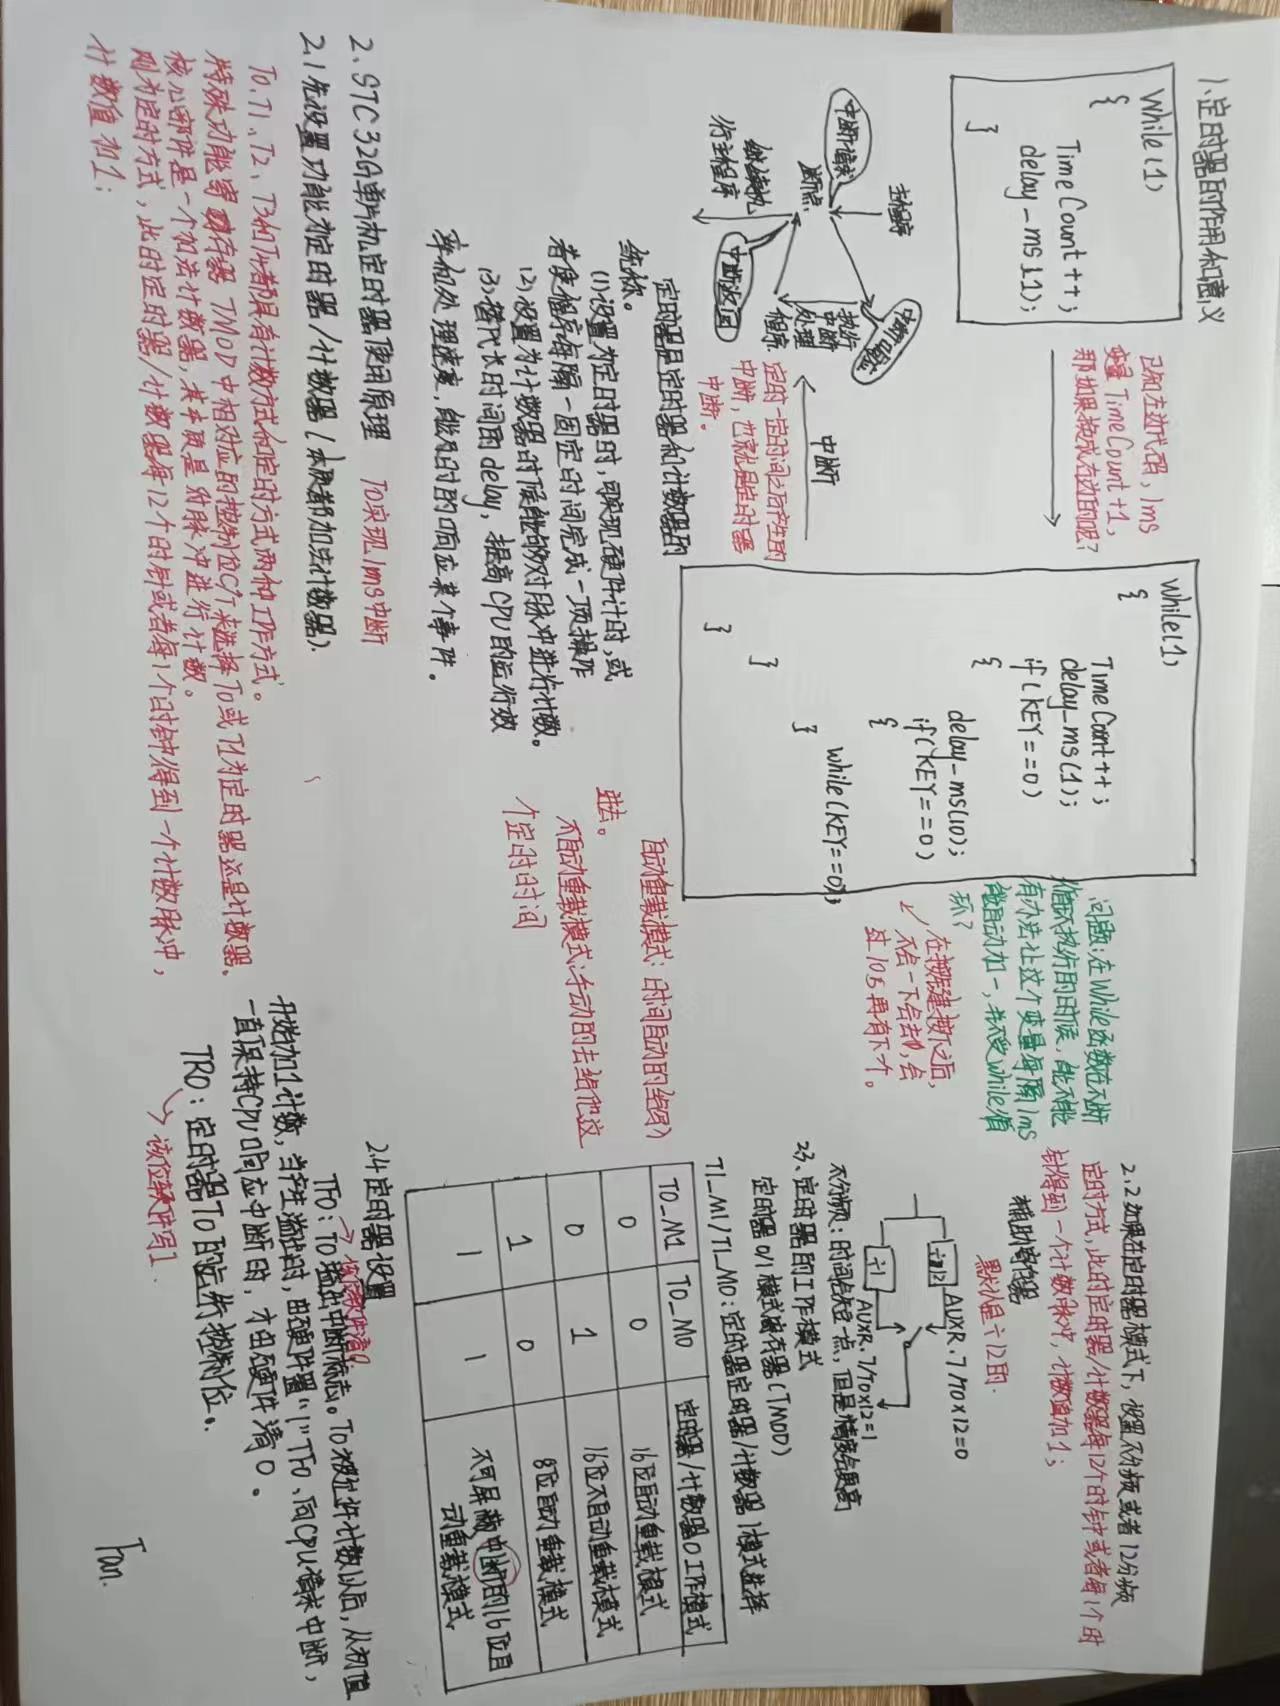 1、定时器的作用和意义
While(1)
{
Time Count++;
delay_ms(1);
}
已知左边代码，1ms
变量TimeCount+1，
那如果换成右边的呢？
While(1)
{
Time Count++;
delay_ms(1);
if(KEY==0)
{
delay_ms(10);
if(KEY==0)
{
while(KEY==0);
}
}
}
问题：在While函数在不断
循环执行的时候，能不能
有办法让这个变量每隔1ms
能自动加一，并不受while循
环？
在按键按下之后，
不会一下会去加，会
过10s再有下个。
主程序
中断请求
断点
中断响应
执行
中断
处理
程序
中断返回
继续执
行主程序
中断
定时一定时间之后产生的
中断，也就是定时器
中断。
定时器是定时器和计数器的
统称。
(1)设置为定时器时，可实现硬件计时，或
者使程序每隔一固定时间完成一项操作
(2)设置为计数器时候能够对脉冲进行计数。
(3)替代长时间的delay，提高CPU的运行效
率和处理速度，能及时的响应某个事件。
2、STC32G单片机定时器使用原理 T0实现1ms中断
2.1 先设置功能为定时器/计数器(本质都加法计数器)．
T0、T1、T2、T3和T4都具有计数方式和定时方式两种工作方式。
特殊功能寄存器TMOD中相对应的控制位C/T来选择T0或T1为定时器还是计数器、
核心部件是一个加法计数器，其本质是对脉冲进行计数。
则为定时方式，此时定时器/计数器每12个时钟或者每1个时钟得到一个计数脉冲，
计数值加1；
2.2 如果在定时器模式下，设置不分频或者12分频
定时方式，此时定时器/计数器每12个时钟或者每1个时
钟得到一个计数脉冲，计数值加1；
辅助寄存器 默认是÷12的．
÷12 AUXR.7/T0x12=0
÷1 AUXR.7/T0x12=1
不分频：时间会短一点，但是精度会更高
2.3、定时器的工作模式
定时器0/1模式寄存器(TMOD)
T1_M1/T1_M0：定时器定时器/计数器1模式选择
T0_M1 T0_M0 定时器/计数器0工作模式
0 0 16位自动重载模式
0 1 16位不自动重载模式
1 0 8位自动重载模式
1 1 不可屏蔽中断的16位自
动重载模式
自动重载模式：时间自动的给
进去。
不自动重载模式：手动的去给他这
个定时时间
2.4 定时器设置
该位软件清0
TF0：T0溢出中断标志。T0被允许计数以后，从初值
开始加1计数，当产生溢出时，由硬件置"1"TF0、向CPU请求中断，
一直保持CPU响应中断时，才由硬件清0。
TR0：定时器T0的运行控制位。
该位软件写1
Tan.